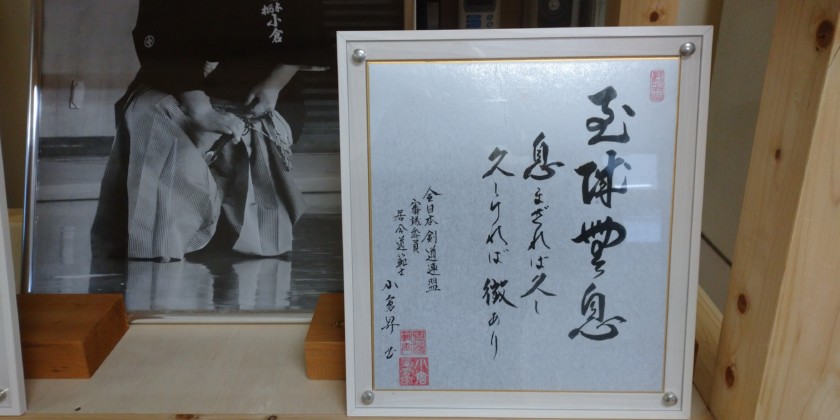 至誠無息
息まざれば久し
久しければ徴あり
全日本剣道連盟
審議委員
居合道範士
小倉昇 書
栃木
小倉